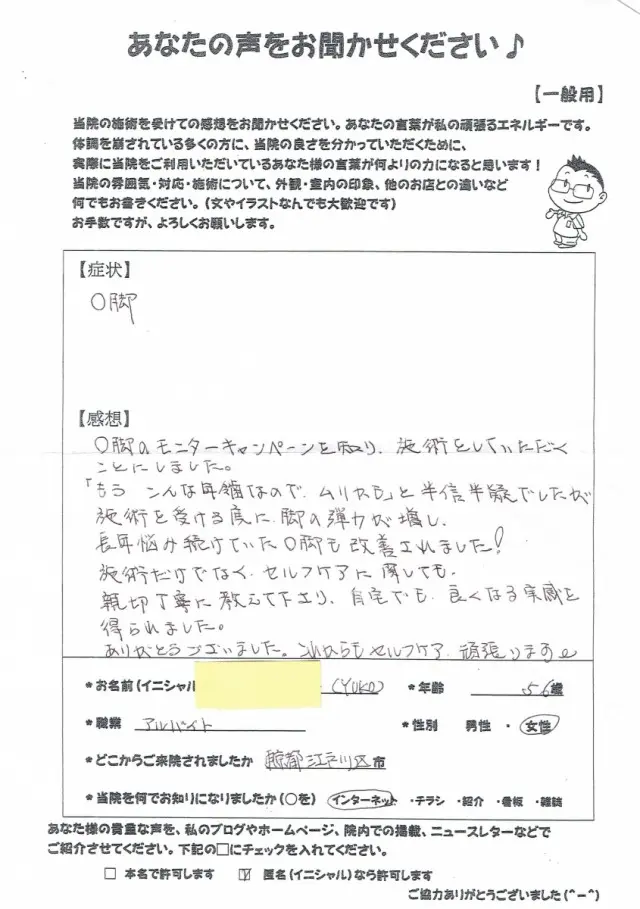 あなたの声をお聞かせください♪
【一般用】
当院の施術を受けての感想をお聞かせください。あなたの言葉が私の頑張るエネルギーです。
体調を崩されている多くの方に、当院の良さを分かっていただくために、
実際に当院をご利用いただいているあなた様の言葉が何よりの力になると思います！
当院の雰囲気・対応・施術について、外観・室内の印象、他のお店との違いなど
何でもお書きください。（文やイラストなんでも大歓迎です）
お手数ですが、よろしくお願いします。
【症状】
○脚
【感想】
○脚のモニターキャンペーンを知り、施術をしていただく
ことにしました。
「もう こんな年齢なので、ムリかも」と半信半疑でしたが
施術を受ける度に、脚の弾力が増し、
長年悩み続けていた○脚も改善されました!
施術だけでなく、セルフケアに関しても、
親切丁寧に教えて下さり、自宅でも、良くなる実感を
得られました。
ありがとうございました。これからもセルフケア、頑張ります
*お名前(イニシャル (YUKO) *年齢 56歳
*職業 アルバイト *性別 男性 ・ 女性
*どこからご来院されましたか 東京都江戸川区市
*当院を何でお知りになりましたか(○を) インターネット ・チラシ ・紹介 ・看板 ・雑誌
あなた様の貴重な声を、私のブログやホームページ、院内での掲載、ニュースレターなどで
ご紹介させてください。下記の□にチェックを入れてください。
□ 本名で許可します ☑ 匿名(イニシャル)なら許可します
ご協力ありがとうございました(^-^)